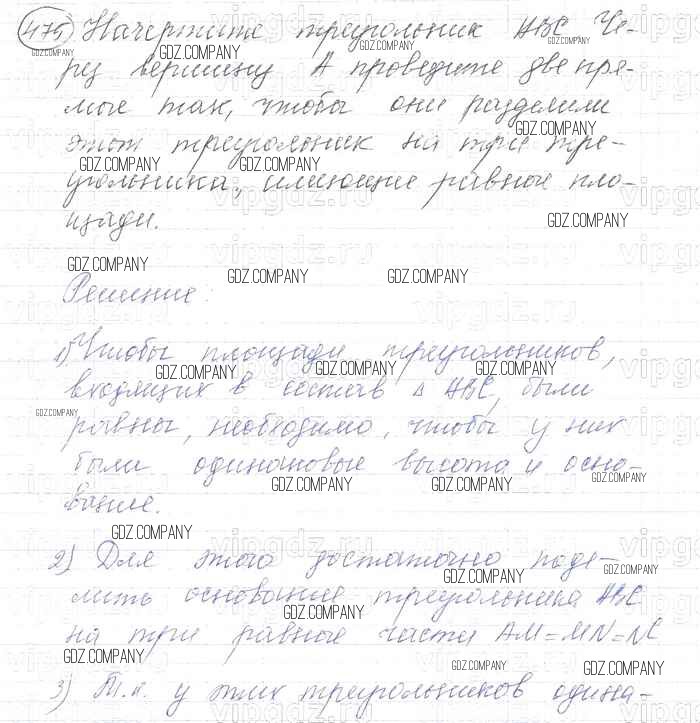 475) Начертите треугольник ABC. Че-
рез вершину A проведите две пря-
мые так, чтобы они разделили
этот треугольник на три тре-
угольника, имеющие равные пло-
щади.
Решение:
1) Чтобы площади треугольников,
входящих в состав △ ABC, были
равны, необходимо, чтобы у них
были одинаковые высота и осно-
вание.
2) Для этого достаточно поде-
лить основание треугольника ABC
на три равные части AM=MN=NC
3) Т.к. у этих треугольников одина-